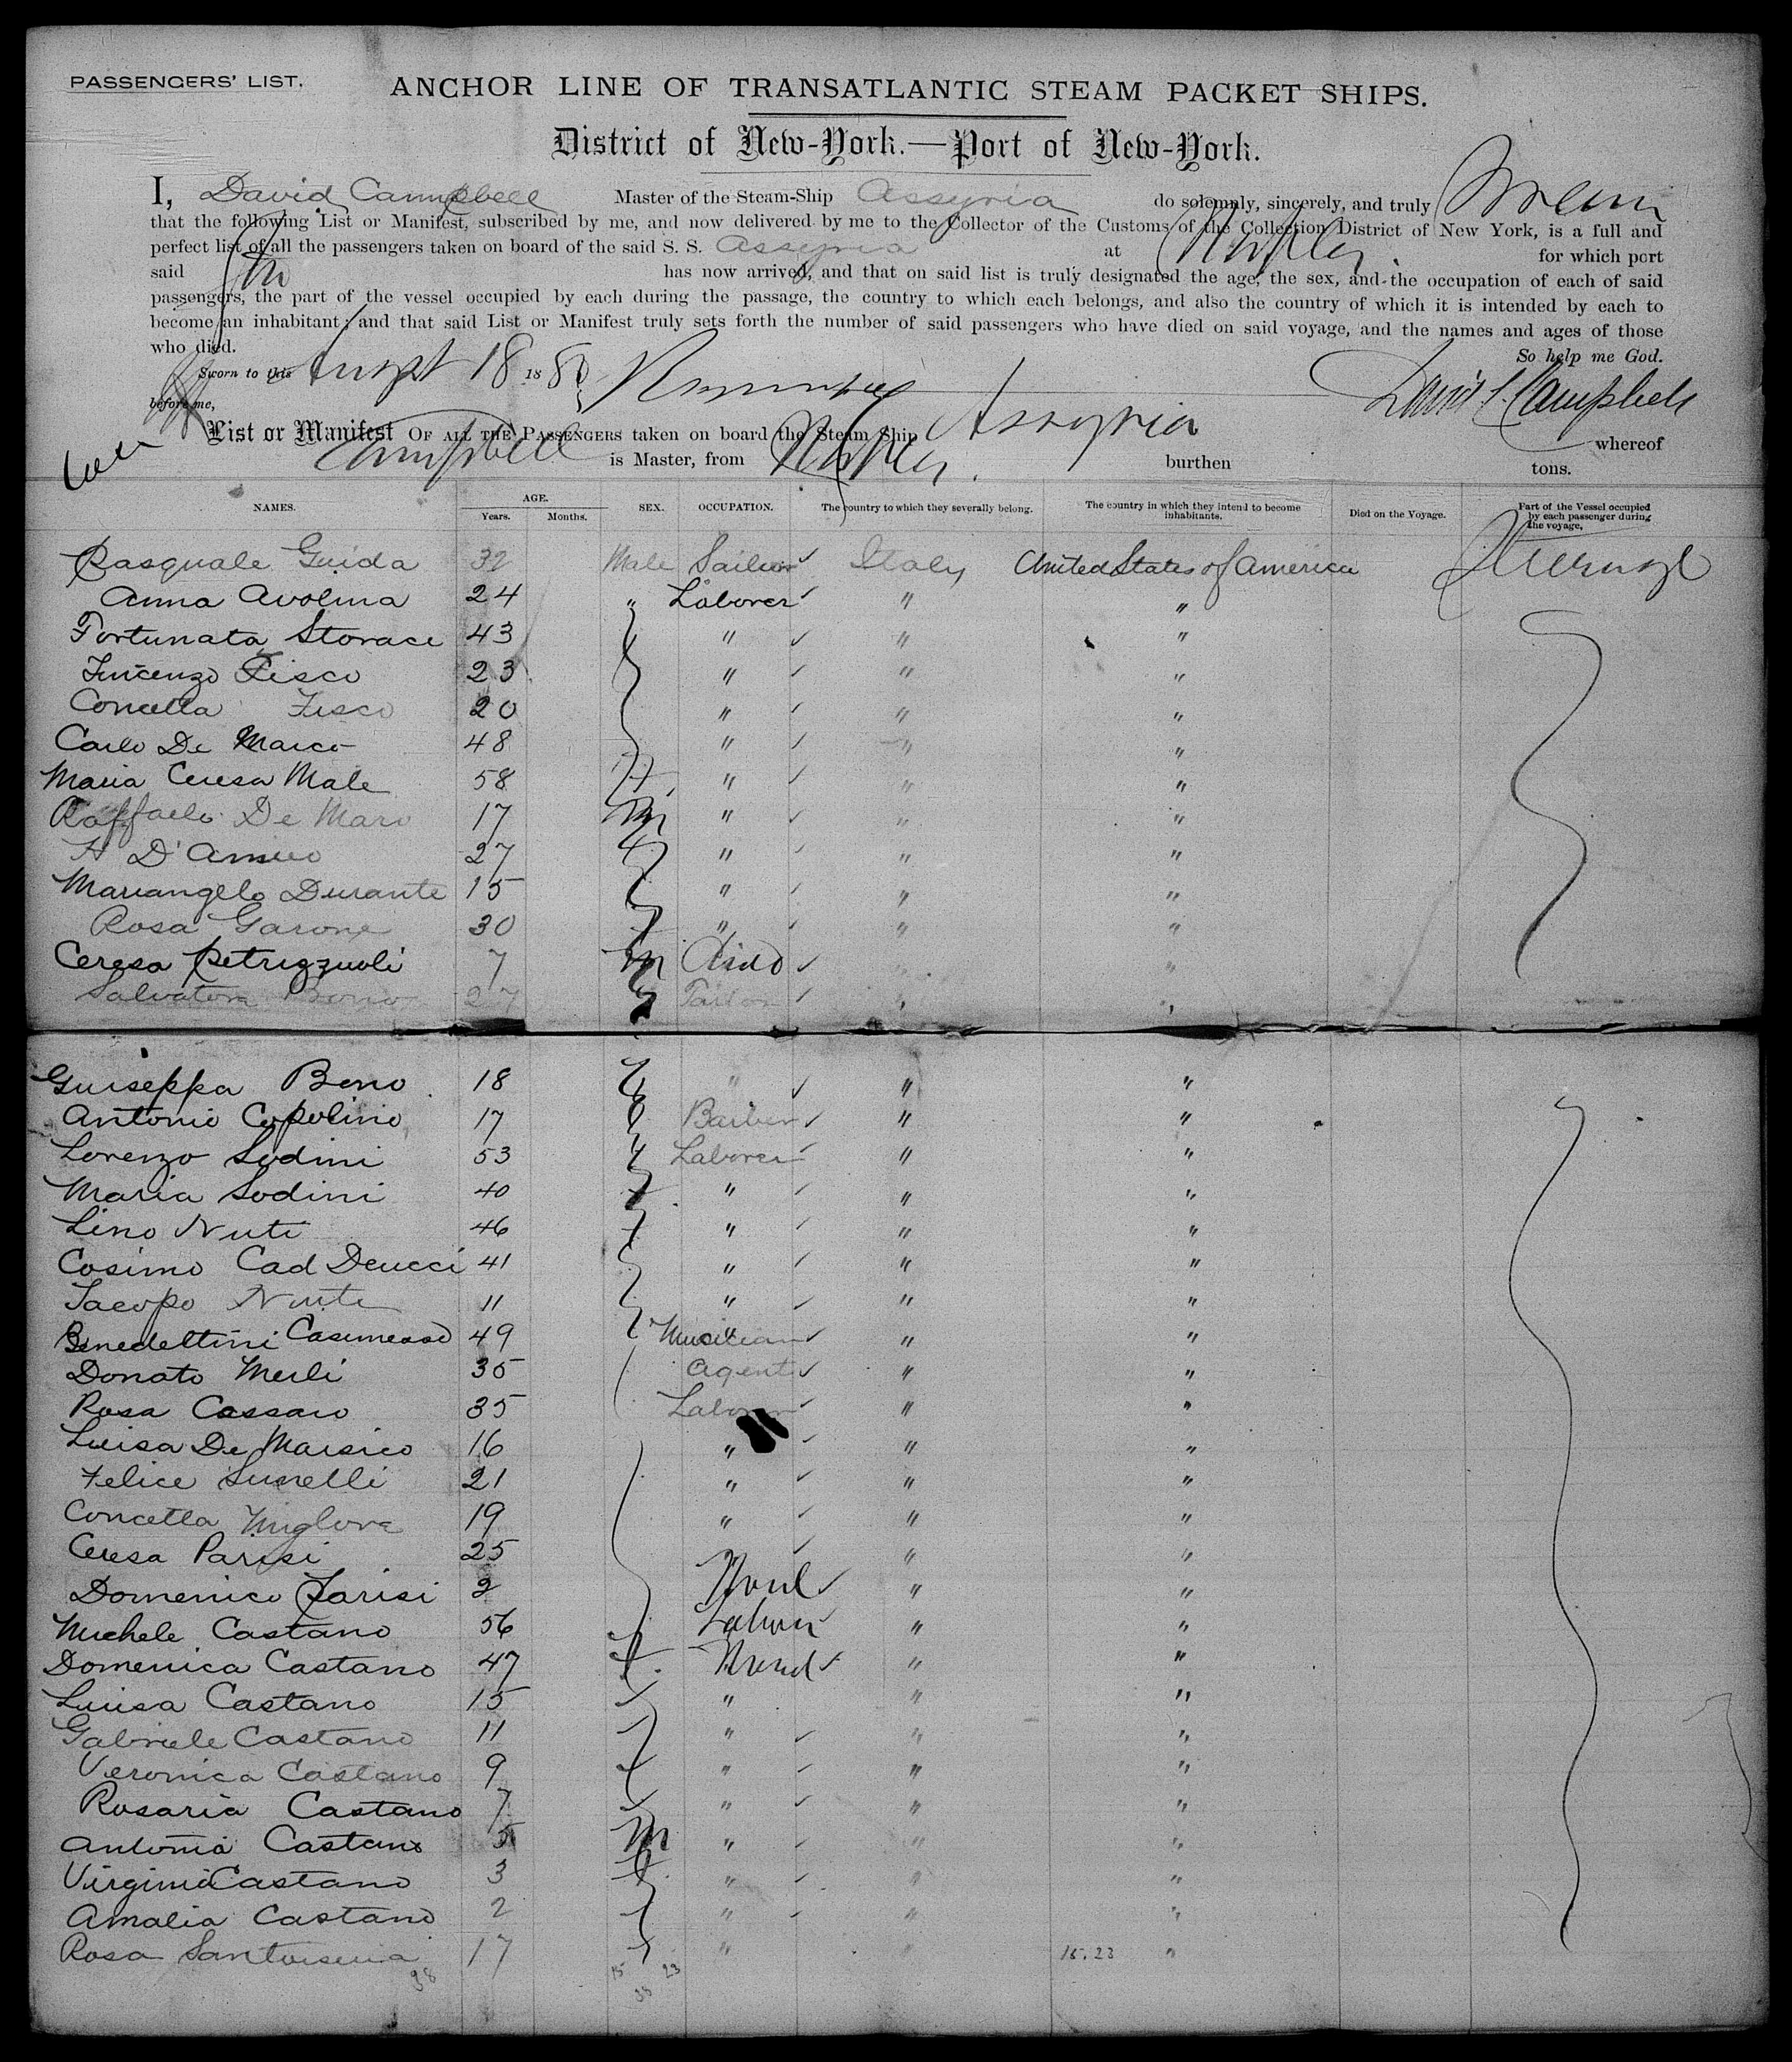 PASSENGERS' LIST.
ANCHOR LINE OF TRANSATLANTIC STEAM PACKET SHIPS.
District of New-York.—Port of New-York.
I, David Campbell Master of the Steam-Ship Assyria do solemnly, sincerely, and truly Swear
that the following List or Manifest, subscribed by me, and now delivered by me to the Collector of the Customs of the Collection District of New York, is a full and
perfect list of all the passengers taken on board of the said S. S. Assyria at Naples for which port
said has now arrived, and that on said list is truly designated the age, the sex, and the occupation of each of said
passengers, the part of the vessel occupied by each during the passage, the country to which each belongs, and also the country of which it is intended by each to
become an inhabitant; and that said List or Manifest truly sets forth the number of said passengers who have died on said voyage, and the names and ages of those
who died.
So help me God.
Sworn to this August 18 188
before me,
David Campbell
List or Manifest OF ALL THE PASSENGERS taken on board the Steam Ship Assyria whereof
Campbell is Master, from Naples. burthen tons.
NAMES. AGE. Years. Months. SEX. OCCUPATION. The country to which they severally belong. The country in which they intend to become inhabitants. Died on the Voyage. Part of the Vessel occupied by each passenger during the voyage.
Pasquale Guida 32 Male Sailor Italy United States of America Steerage
Anna Avolina 24 " Laborer " "
Fortunata Storace 43 " " "
Vincenzo Fisco 23 " " "
Concetta Fisco 20 " " "
Carlo De Marco 48 " " "
Maria Ceresa Male 58 " " "
Raffaele De Maro 17 m " " "
D'Amico 27 " " "
Mariangelo Durante 15 " " "
Rosa Garone 30 " " "
Ceresa Petruzzuoli 7 m Child
Salvatore Bono 27 Tailor " "
Guiseppa Bono 18 " " "
Antonio Copolino 17 Barber " "
Lorenzo Sodini 53 Laborer " "
Maria Sodini 40 " " "
Lino Nuti 46 " " "
Cosimo Cad Deucci 41 " " "
Jacopo Nuti 11 " " "
Benedettini Casimesso 49 Musician " "
Donato Merli 35 Agent " "
Rosa Cassaro 35 Laborer " "
Luisa De Marsico 16 " " "
Felice Sunelli 21 " " "
Concetta Miglore 19 " " "
Ceresa Parisi 25 " "
Domenico Parisi 2 " "
Michele Castano 56 Laborer " "
Domenica Castano 47 " "
Luisa Castano 15 " " "
Gabriele Castano 11 " " "
Veronica Castano 9 " " "
Rosaria Castano 7 " " "
Antonia Castano 5 M " " "
Virginia Castano 3 " " "
Amalia Castano 2 " " "
Rosa 17 " " 15.23 "
38 15 23
38